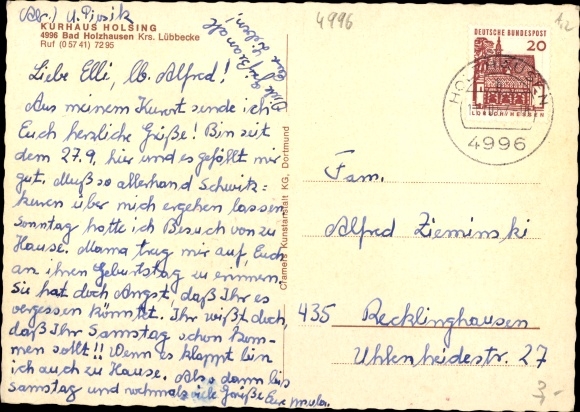 4996
KURHAUS HOLSING
4996 Bad Holzhausen Krs. Lübbecke
Ruf (0 57 41) 72 95
DEUTSCHE BUNDESPOST
20
LORSCH/HESSEN
HOLZHAUSEN
4996
Liebe Elli, lb. Alfred!
Aus meinem Kurort sende ich
Euch herzliche Grüße! Bin seit
dem 27.9. hier und es gefällt mir
gut. Muß so allerhand Schwitz=
kuren über mich ergehen lassen.
Sonntag hatte ich Besuch von zu
Hause. Mama trug mir auf, Euch
an ihren Geburtstag zu erinnern.
Sie hat doch Angst, daß Ihr es
vergessen könntet. Ihr wißt doch,
daß Ihr Samstag schon kom-
men sollt!! Wenn es klappt bin
ich auch zu Hause. Also dann bis
Samstag und nochmals viele Grüße Eure
Cramers Kunstanstalt KG, Dortmund
Fam.
Alfred Zieminski
435 Recklinghausen
Uhlenheidestr. 27
3,-